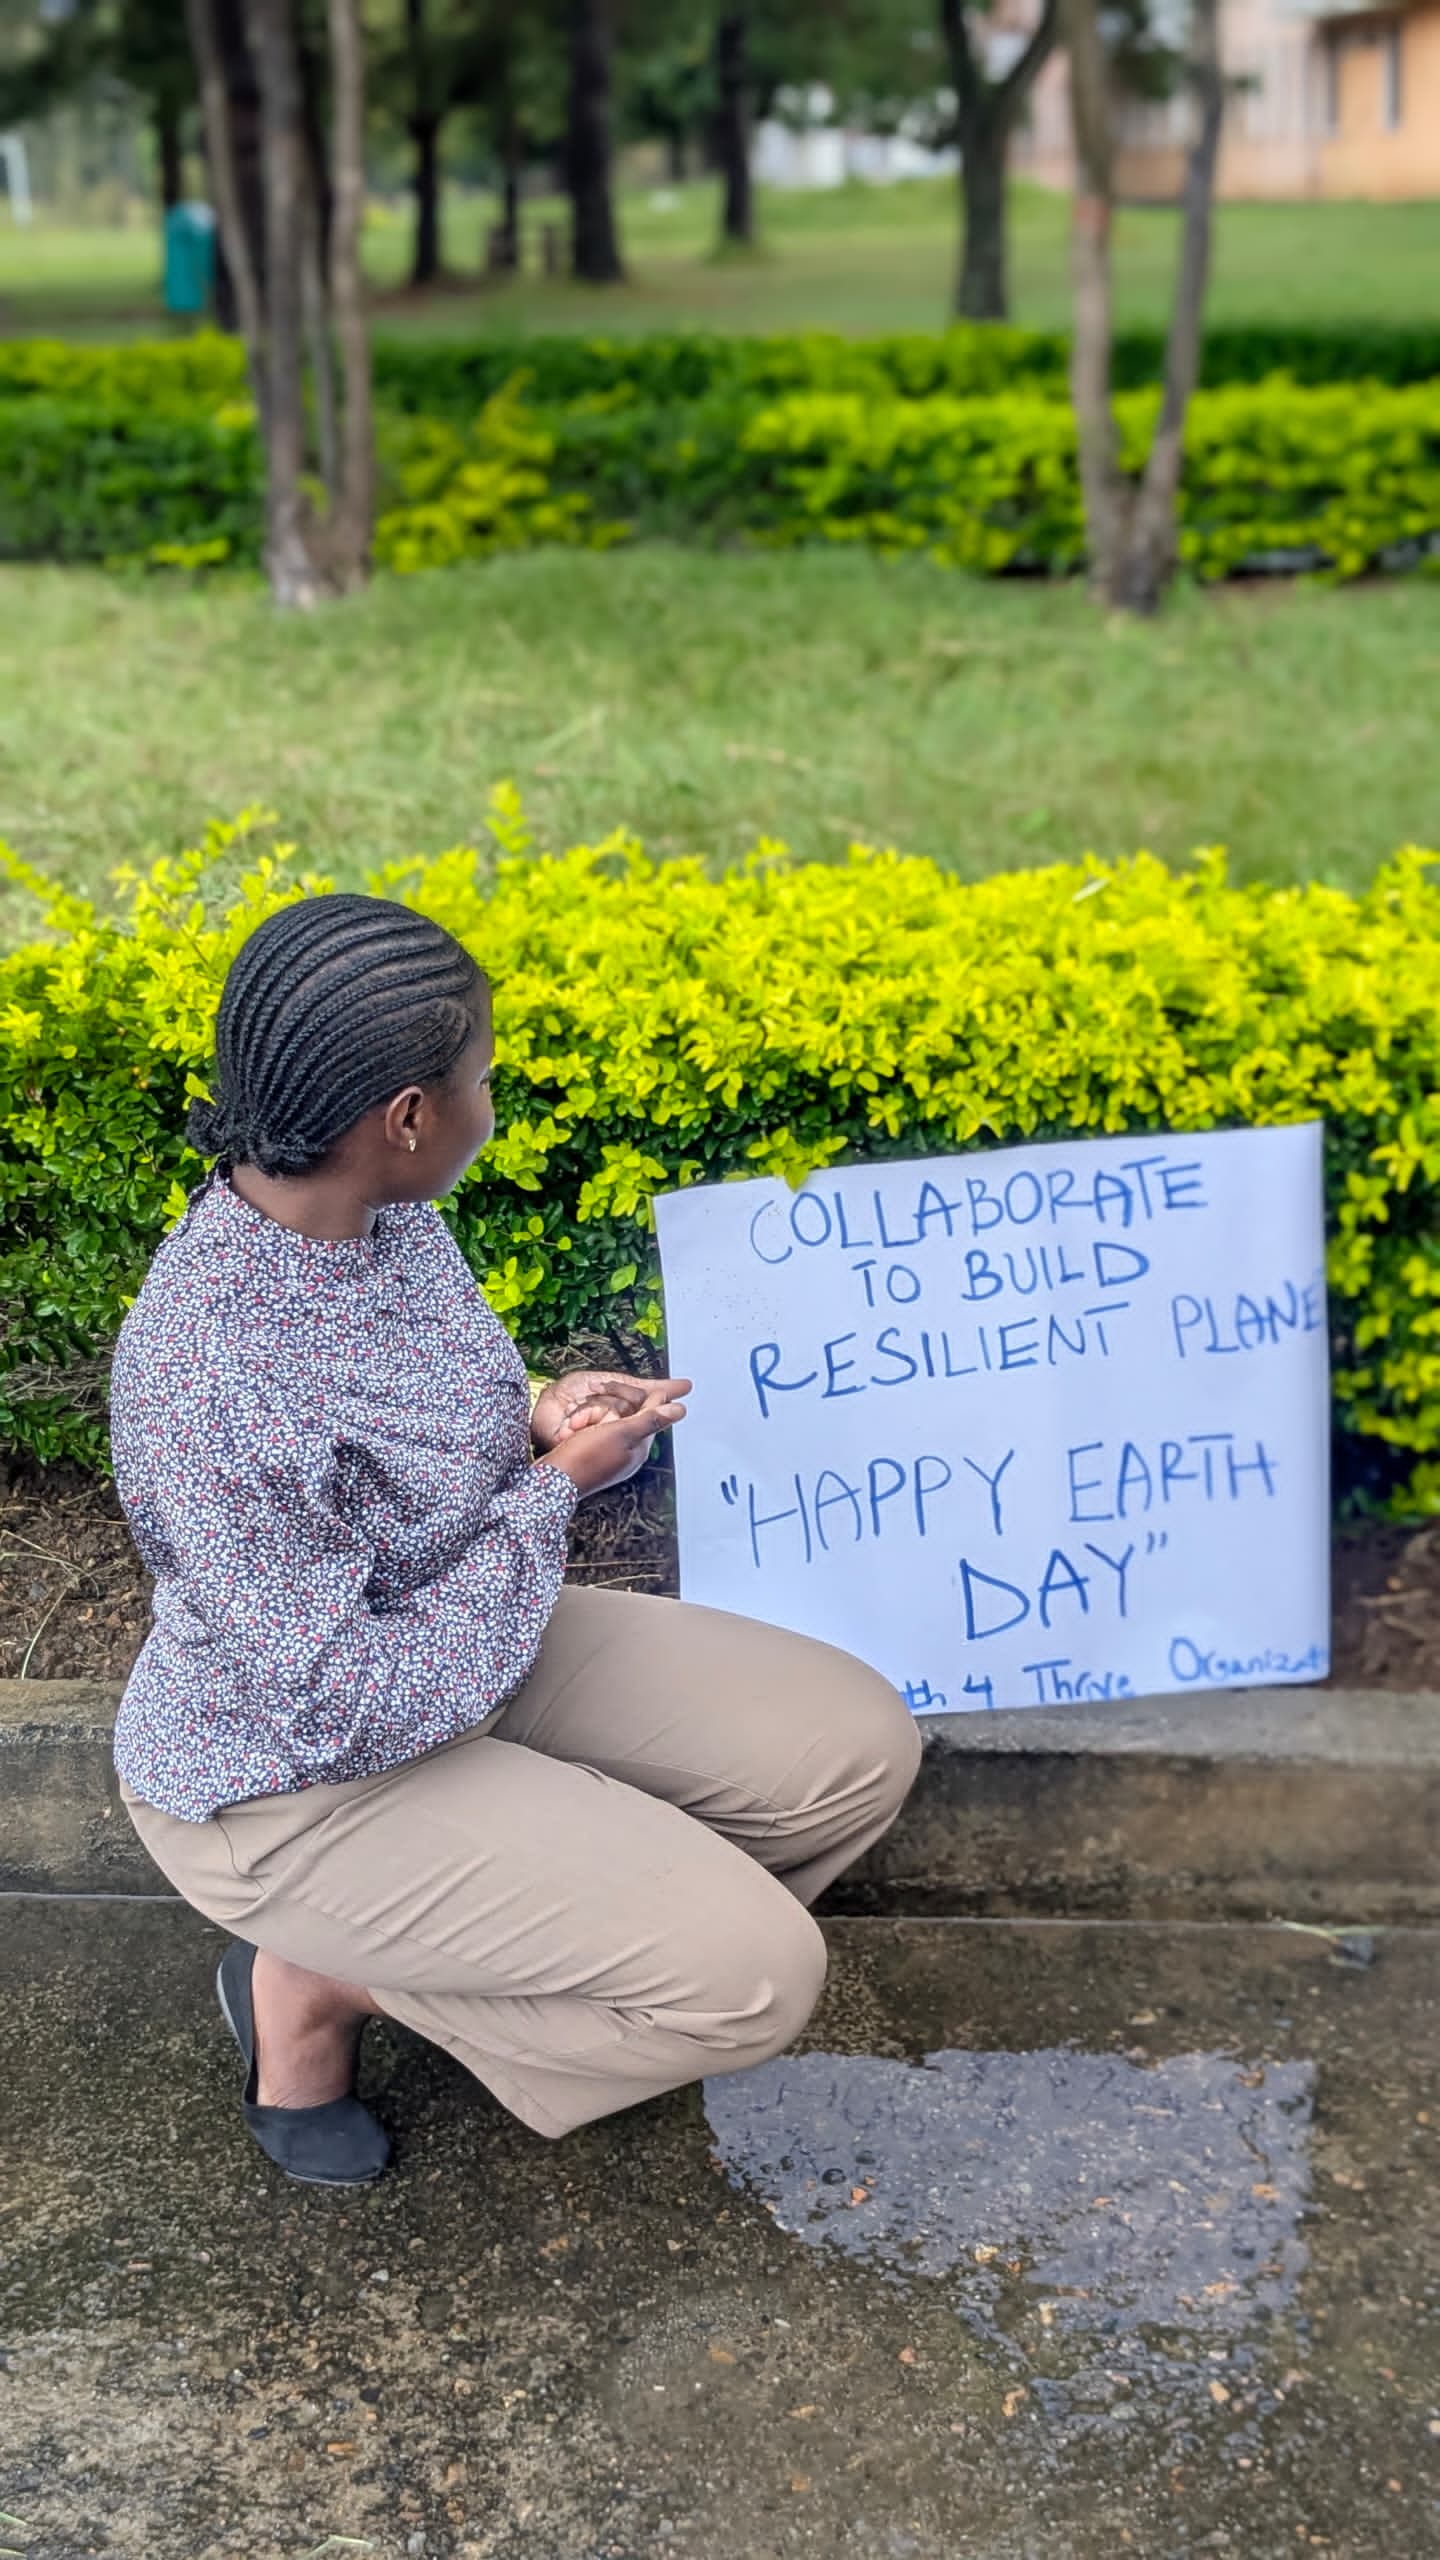 COLLABORATE
TO BUILD
RESILIENT PLANE
"HAPPY EARTH
DAY"
th 4 Thrive Organizat